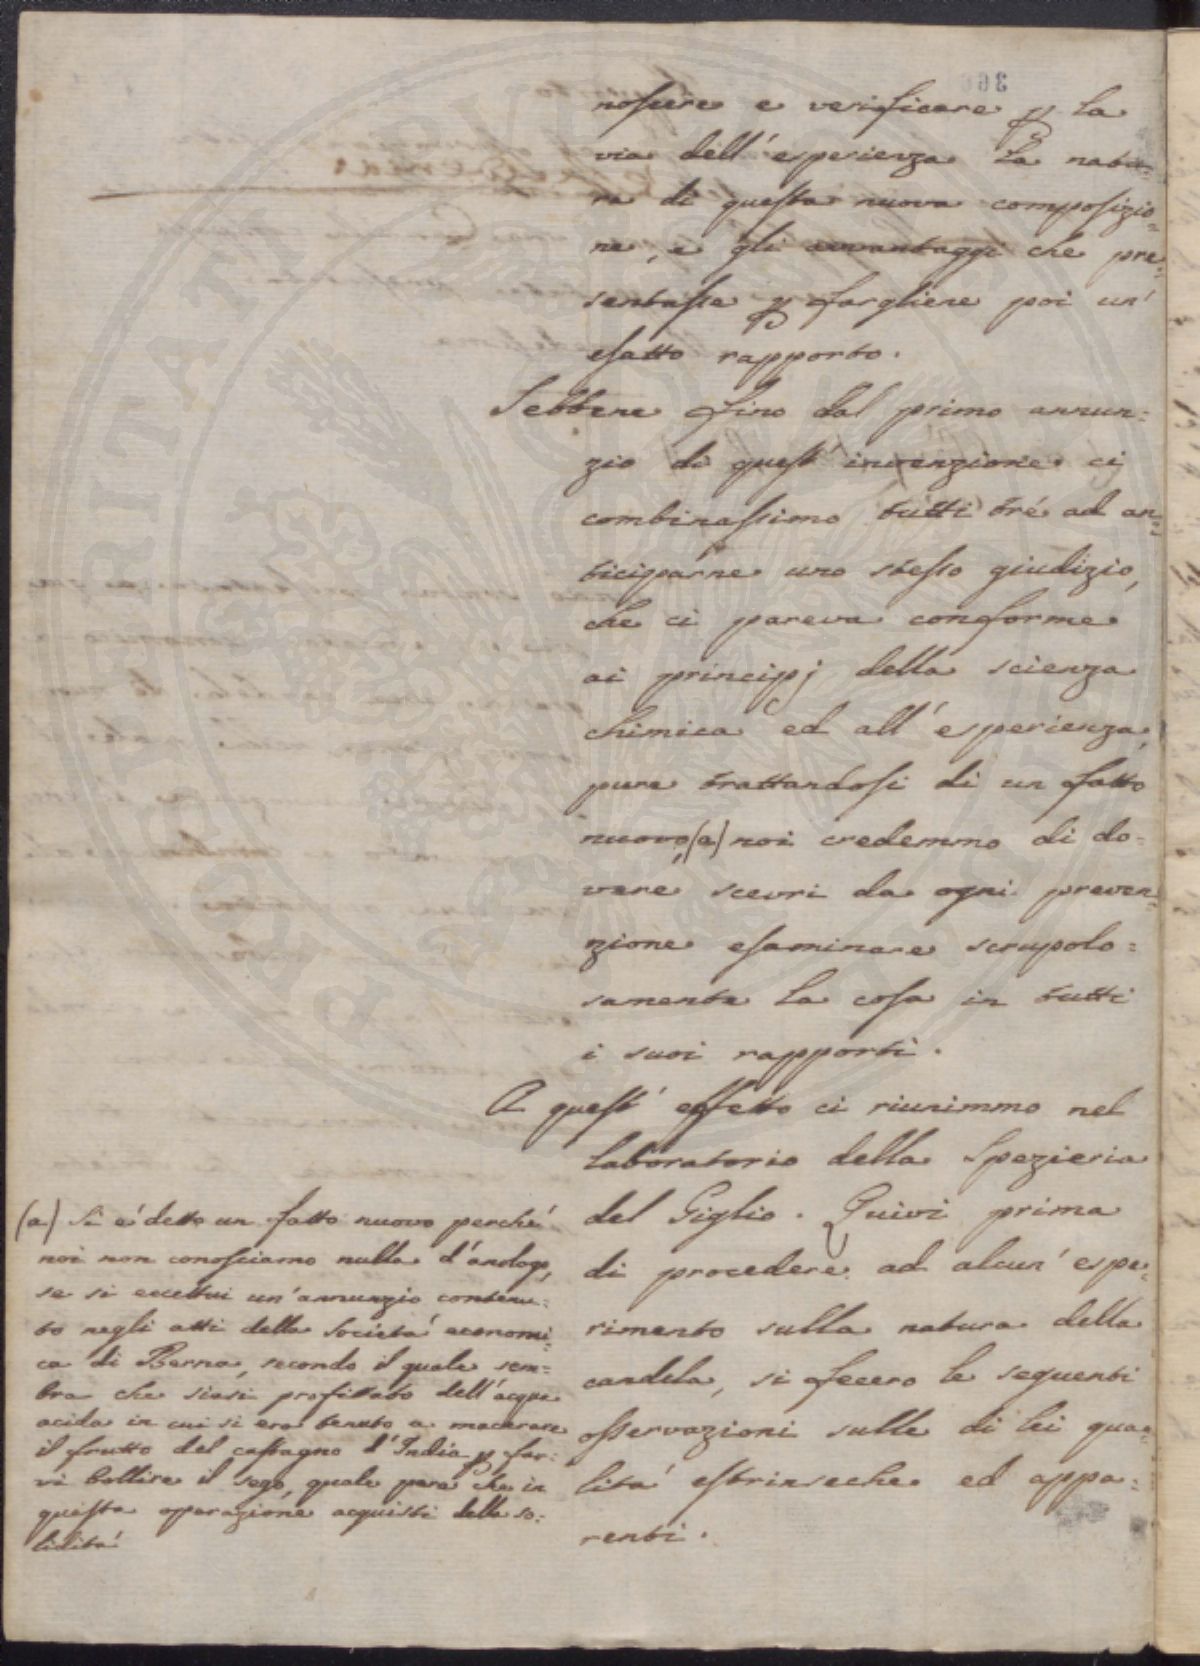 noscere e verificare p la
via dell'esperienza la natu=
ra di questa nuova composizio=
ne, e gli avvantaggi che pre=
sentasse p fargliene poi un'
esatto rapporto.
Sebbene fino dal primo annun=
zio di quest'invenzione ci
combinassimo tutti tré ad an=
ticiparne uno stesso giudizio,
che ci pareva conforme
ai principj della scienza
chimica ed all'esperienza,
pure trattandosi di un fatto
nuovo(a) noi credemmo di do=
vere, scevri da ogni preven=
zione esaminare scrupolo=
samente la cosa in tutti
i suoi rapporti.
A quest'effetto ci riunimmo nel
laboratorio della Spezieria
del Giglio. Quivi prima
di procedere ad alcun'espe=
rimento sulla natura della
candela, si fecero le seguenti
osservazioni sulle di lei qua=
lità estrinseche ed appa=
renti.
(a) Si è detto un fatto nuovo perché
noi non conosciamo nulla d'analogo,
se si eccettui un'annunzio contenu=
to negli atti della Società economi=
ca di Berna, secondo il quale sem=
bra che siasi profittato dell'acqua
acida in cui si era tenuto a macerare
il frutto del castagno d'India p far=
vi bollire il sego, quale pare che in
questa operazione acquisti della so=
lidità